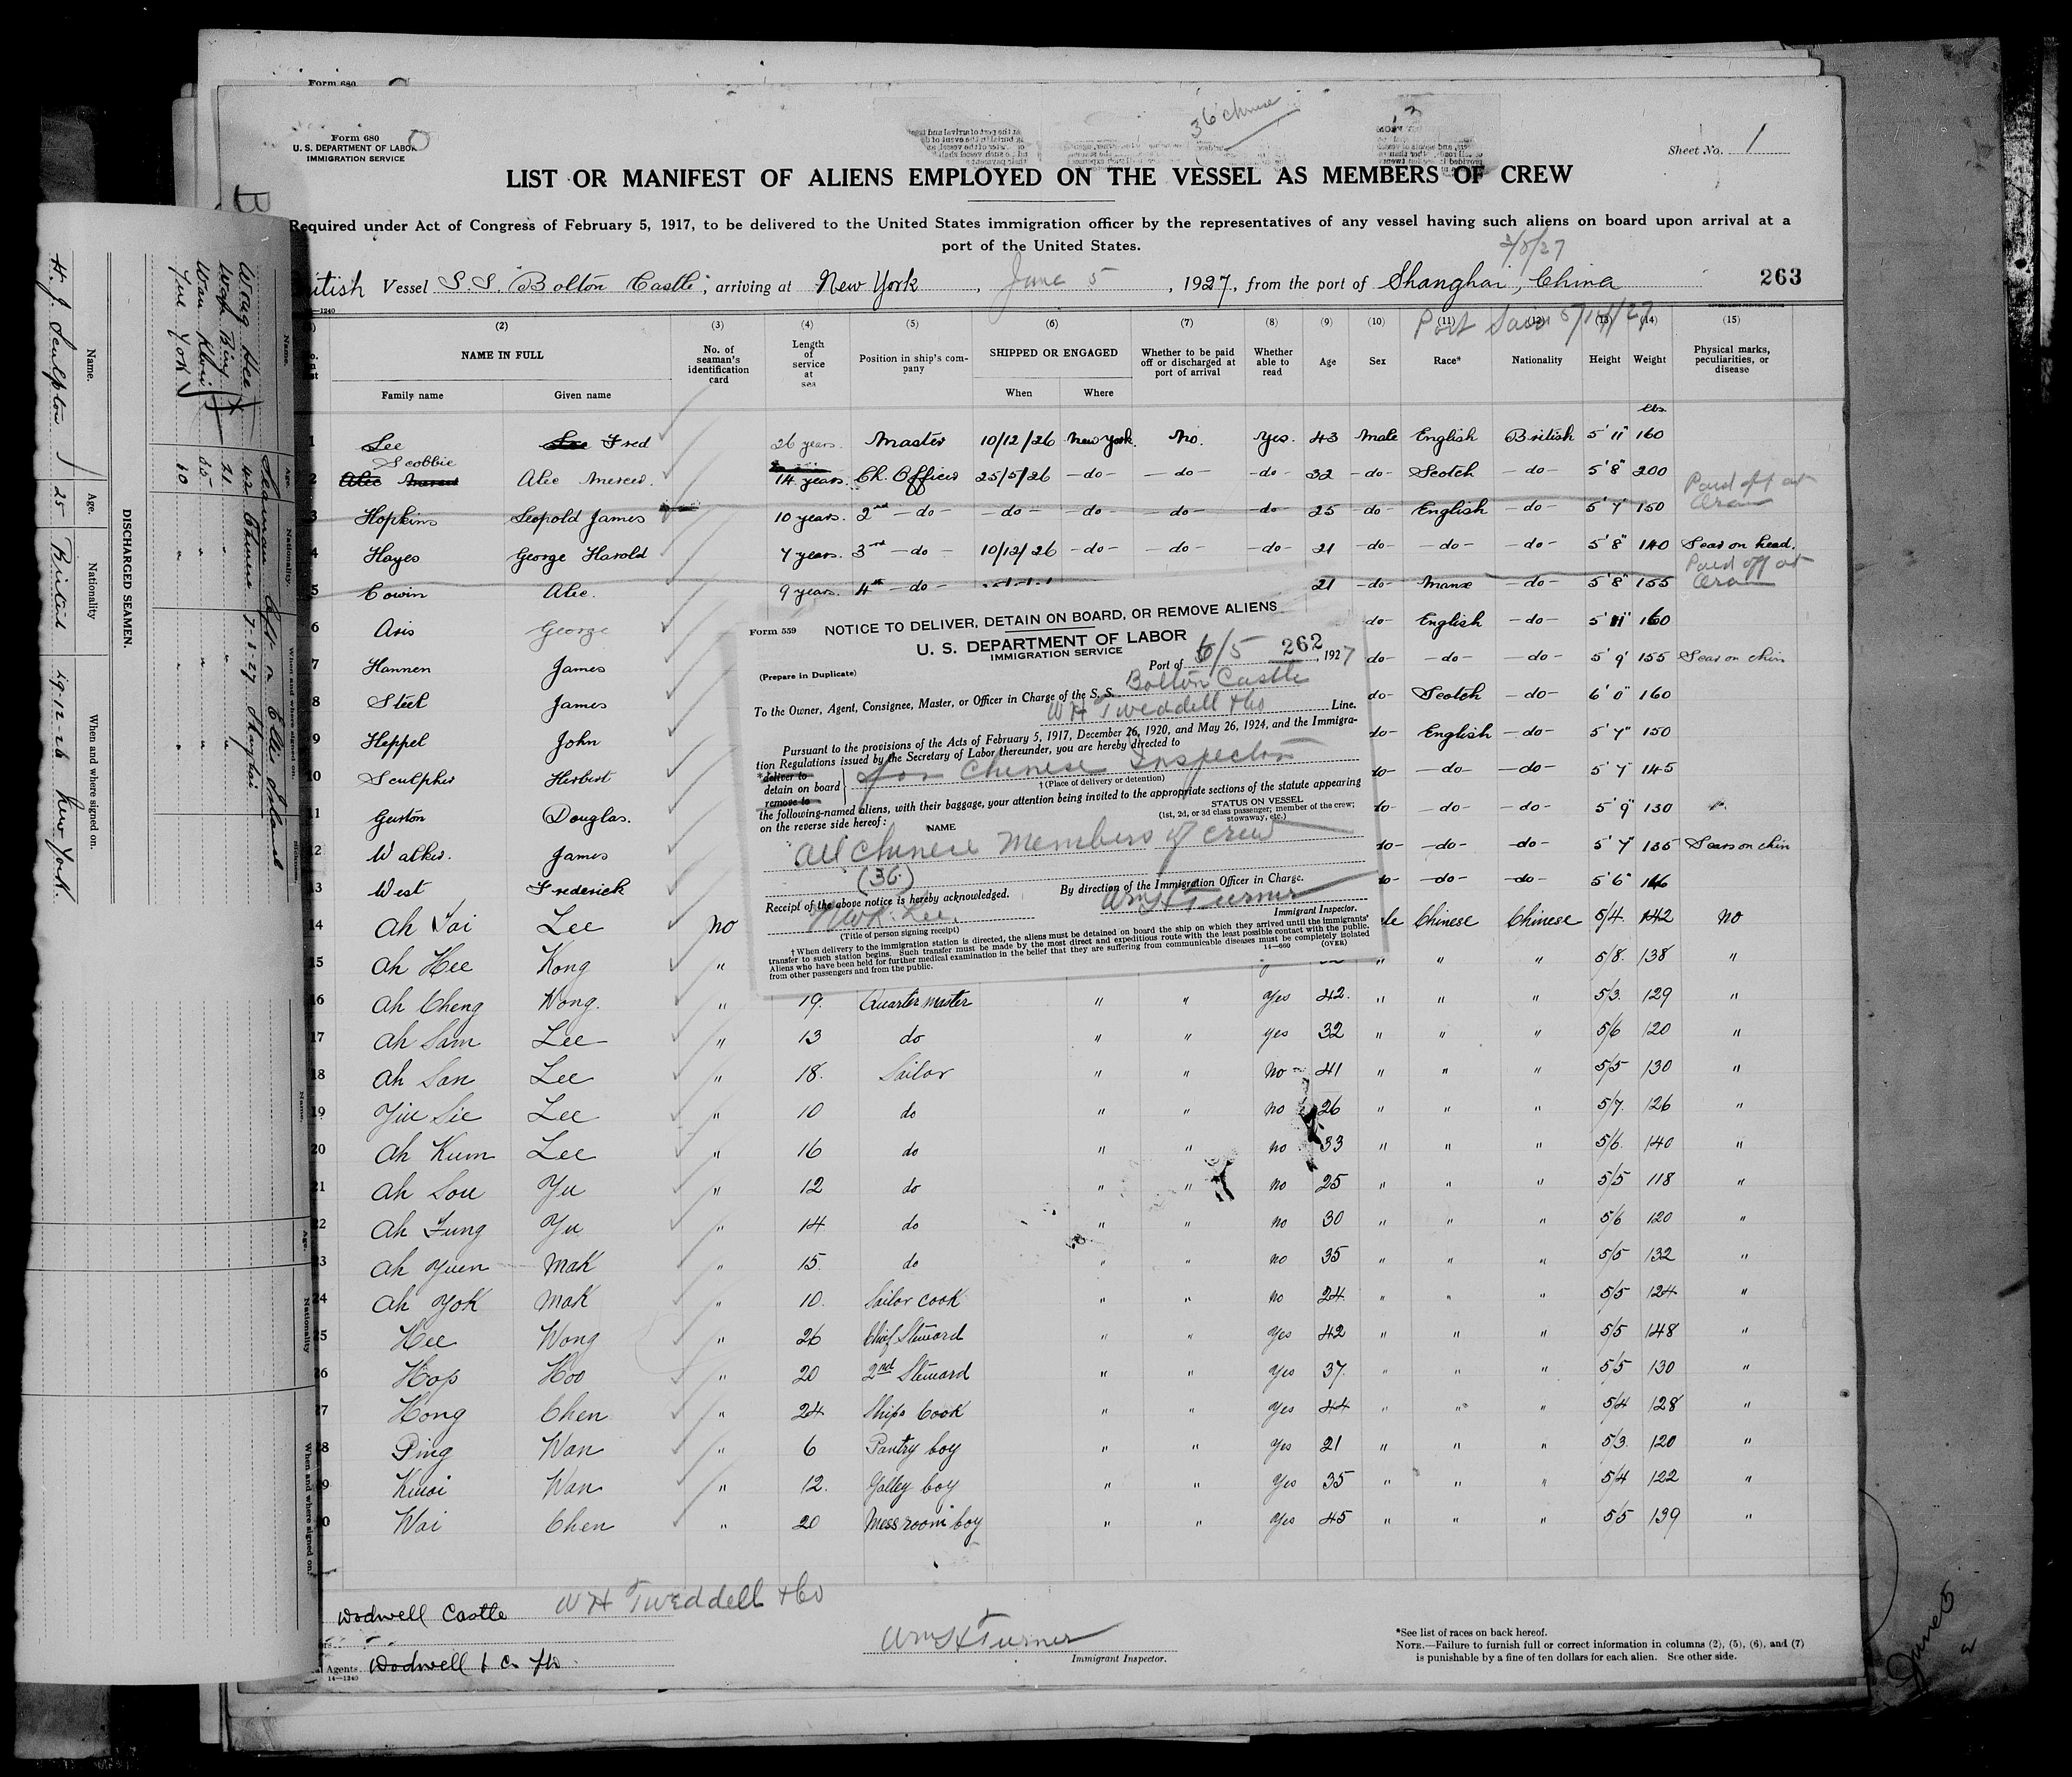 Form 680
Form 680
U. S. DEPARTMENT OF LABOR
IMMIGRATION SERVICE
36 Chinese
3
Sheet No. 1
LIST OR MANIFEST OF ALIENS EMPLOYED ON THE VESSEL AS MEMBERS OF CREW
Required under Act of Congress of February 5, 1917, to be delivered to the United States immigration officer by the representatives of any vessel having such aliens on board upon arrival at a
port of the United States.
Vessel S.S. Bolton Castle, arriving at New York, June 5, 1927, from the port of Shanghai, China
263
Port Said
(2) (3) (4) (5) (6) (7) (8) (9) (10) (11) (12) (13) (14) (15)
NAME IN FULL No. of seaman's identification card Length of service at sea Position in ship's company SHIPPED OR ENGAGED Whether to be paid off or discharged at port of arrival Whether able to read Age Sex Race* Nationality Height Weight Physical marks, peculiarities, or disease
Family name Given name When Where
lbs.
1 Lee Fred 26 years. Master 10/12/26 New York. No. Yes. 43 Male English British 5'11" 160
2 Scobbie Alec Merced. 14 years. Ch. Officer 25/5/26 -do- -do- -do- 32 -do- Scotch -do- 5'8" 200
Paid off at Oran
3 Hopkins Leopold James 10 years. 2nd -do- -do- -do- -do- -do- 25 -do- English -do- 5'7" 150
4 Hayes George Harold 7 years. 3rd -do- 10/12/26 -do- -do- -do- 21 -do- -do- -do- 5'8" 140 Scar on head.
Paid off at Oran
5 Cowin Alec. 9 years. 4th -do- 21 -do- Manx -do- 5'8" 155
6 Aris George do- English -do- 5'11" 160
7 Hannen James do- -do- -do- 5'9" 155 Scar on chin
8 Steel James do- Scotch -do- 6'0" 160
9 Heppel John do- English -do- 5'7" 150
10 Sculpher Herbert do- -do- -do- 5'7" 145
11 Gurton Douglas. do- -do- -do- 5'9" 130
12 Walker. James do- -do- -do- 5'7" 135 Scars on chin
13 West Frederick do- -do- -do- 5'6" 146
14 Ah Tai Lee No Chinese Chinese 5/4. 142 No
15 Ah Hee Kong " " " " 5/8. 138 "
16 Ah Cheng Wong. " 19. Quarter master " " Yes 42. " " " 5/3. 129 "
17 Ah Sam Lee " 13 do " " yes 32 " " " 5/6 120 "
18 Ah San Lee " 18. Sailor " " No 41 " " " 5/5 130 "
19 Yiu Sie Lee " 10 do " " no 26 " " " 5/7. 126 "
20 Ah Kum Lee " 16 do " " no 33 " " " 5/6. 140 "
21 Ah Sou Yu " 12 do " " no 25 " " " 5/5 118 "
22 Ah Fung Yu " 14 do " " no 30 " " " 5/6 120 "
23 Ah Yuen Mak " 15. do " " no 35 " " " 5/5 132 "
24 Ah Yok Mak " 10. Sailor cook " " no 24 " " " 5/5 124 "
25 Hee Wong " 26 Chief Steward " " Yes 42 " " " 5/5 148 "
26 Hop Hoo " 20 2nd Steward " " Yes 37. " " " 5/5 130 "
27 Hong Chen " 24 Ships Cook " " Yes 44 " " " 5/4 128 "
28 Ping Wan " 6 Pantry boy " " Yes 21 " " " 5/3. 120 "
29 Kwai Wan " 12. Galley boy " " Yes 35 " " " 5/4 122 "
30 Wai Chen " 20 Mess room boy " " Yes 45 " " " 5/5 139 "
Dodwell Castle W H Tweddell & Co
Agents Dodwell & Co
14—1240
Wm H Turner
Immigrant Inspector.
*See list of races on back hereof.
NOTE.—Failure to furnish full or correct information in columns (2), (5), (6), and (7)
is punishable by a fine of ten dollars for each alien. See other side.
Form 559
NOTICE TO DELIVER, DETAIN ON BOARD, OR REMOVE ALIENS
U. S. DEPARTMENT OF LABOR
IMMIGRATION SERVICE
262
(Prepare in Duplicate)
Port of 6/5, 1927
To the Owner, Agent, Consignee, Master, or Officer in Charge of the S. S. Bolton Castle
W H Tweddell & Co Line.
Pursuant to the provisions of the Acts of February 5, 1917, December 26, 1920, and May 26, 1924, and the Immigra-
tion Regulations issued by the Secretary of Labor thereunder, you are hereby directed to
*deliver to
detain on board
remove to
for Chinese Inspection
†(Place of delivery or detention)
the following-named aliens, with their baggage, your attention being invited to the appropriate sections of the statute appearing
on the reverse side hereof:
NAME
STATUS ON VESSEL
(1st, 2d, or 3d class passenger; member of the crew;
stowaway, etc.)
All Chinese Members of crew
(36)
Receipt of the above notice is hereby acknowledged.
By direction of the Immigration Officer in Charge.
Wm H Turner
Immigrant Inspector.
(Title of person signing receipt)
†When delivery to the immigration station is directed, the aliens must be detained on board the ship on which they arrived until the immigrants'
transfer to such station begins. Such transfer must be made by the most direct and expeditious route with the least possible contact with the public.
Aliens who have been held for further medical examination in the belief that they are suffering from communicable diseases must be completely isolated
from other passengers and from the public.
14—660 (OVER)
Name. Age. Nationality. When and where signed on.
Seaman left in Ellis Island
Wong Hee 42 Chinese 7-1-27 Shanghai
Wah Bing 21 " "
Wan Khwi 35 " "
Yue York 40 " "
DISCHARGED SEAMEN.
Name. Age. Nationality When and where signed on.
H. J. Sculpher 25 British 19-12-26 New York.
Name. Age. Nationality When and where signed on.
June 5
2